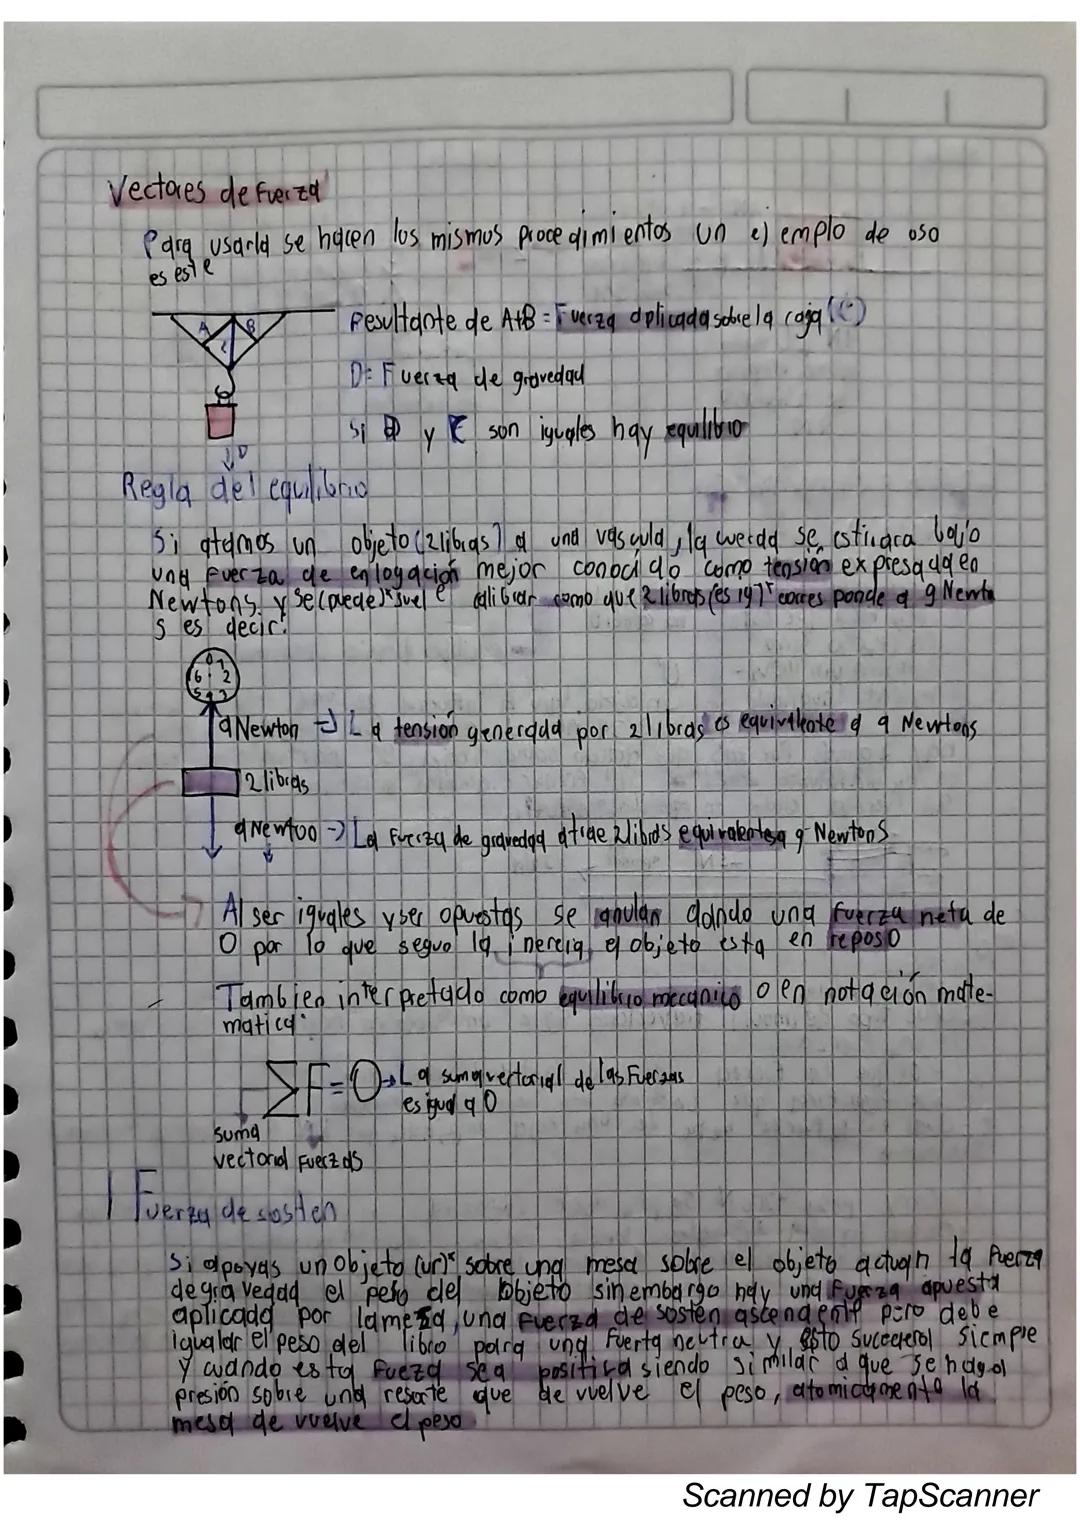 Vectores de Fuerza
Para usarla se hacen los mismos procedimientos un ejemplo de uso
es este
A B
C
Resultante de A+B = Fuerza aplicada sobre la caja (C)
D= Fuerza de gravedad
Si D y C son iguales hay equilibrio
D
Regla del equilibrio
Si atamos un objeto (2 libras) a una vascula, la cuerda se estirara bajo
una fuerza de enlogación mejor conocido como tensión expresada en
Newtons. y se (puede) suele calibrar como que 2 libras corresponde a 9 Newton
s es decir:
0 1
6 2
5 4 3
9Newton → La tensión generada por 2 libras es equivalente a 9 Newtons
2 libras
9 Newton → La fuerza de gravedad atrae 2 libras equivalentes a 9 Newtons
Al ser iguales y ser opuestas se anulan dando una fuerza neta de
0 por lo que seguo la inercia, el objeto esta en reposo
Tambien interpretado como equilibrio mecanico o en notación mate-
matica:
ΣF=0 → La suma vectorial de las Fuerzas
es igual a 0
suma
vectorial Fuerzas
Fuerza de sosten
Si apoyas un objeto sobre una mesa sobre el objeto actuan la fuerza
de gravedad el peso del objeto sin embargo hay una fuerza apuesta
aplicada por la mesa, una fuerza de sosten ascendente pero debe
igualar el peso del libro para una fuerta neutra y esto sucedera siempre
y cuando esta fueza sea positiva siendo similar a que se haga
presión sobre una resorte que de vuelve el peso, atomicamente la
mesa de vuelve el peso
Scanned by TapScanner